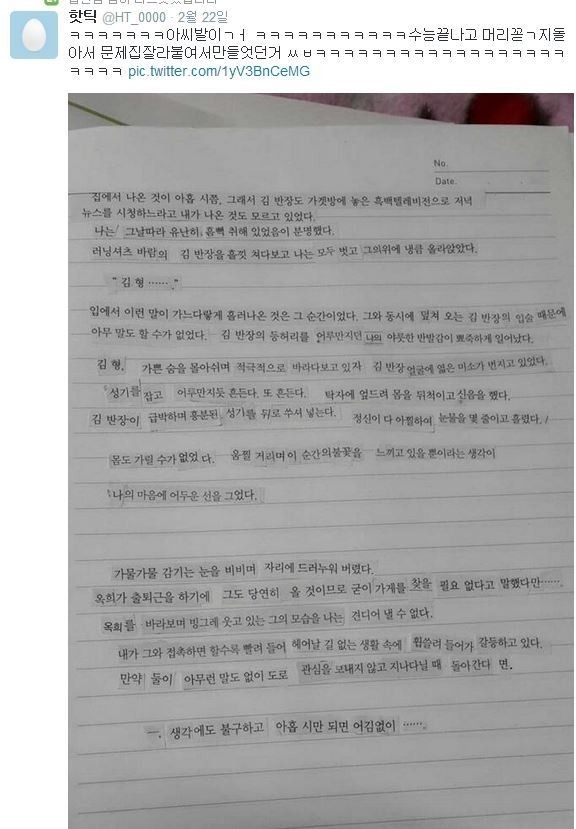 핫틱 @HT_0000 · 2월 22일
ㅋㅋㅋㅋㅋㅋㅋ아씨발이ㄱㅓ ㅋㅋㅋㅋㅋㅋㅋㅋㅋㅋㅋ수능끝나고 머리꼳ㄱ지돌
아서 문제집잘라붙여서만들엇던거 ㅆㅂㅋㅋㅋㅋㅋㅋㅋㅋㅋㅋㅋㅋㅋㅋㅋㅋ
ㅋㅋㅋㅋ pic.twitter.com/1yV3BnCeMG
No.
Date.
집에서 나온 것이 아홉 시쯤, 그래서 김 반장도 가겟방에 놓은 흑백텔레비전으로 저녁
뉴스를 시청하느라고 내가 나온 것도 모르고 있었다.
나는 그날따라 유난히 흠뻑 취해 있었음이 분명했다.
러닝셔츠 바람의 김 반장을 흘낏 쳐다보고 나는 모두 벗고 그의위에 냉큼 올라앉았다.
“ 김 형 ……. ”
입에서 이런 말이 가느다랗게 흘러나온 것은 그 순간이었다. 그와 동시에 덮쳐 오는 김 반장의 입술 때문에
아무 말도 할 수가 없었다. 김 반장의 등허리를 어루만지던 나의 야릇한 반발감이 뾰죽하게 일어났다.
김 형. 가쁜 숨을 몰아쉬며 적극적으로 바라다보고 있자 김 반장 얼굴에 엷은 미소가 번지고 있었다.
성기를 잡고 어루만지듯 흔든다. 또 흔든다. 탁자에 엎드려 몸을 뒤척이고 신음을 했다.
김 반장이 급박하며 흥분된 성기를 뒤로 쑤셔 넣는다. 정신이 다 아찔하여 눈물을 몇 줄이고 흘렸다. /
몸도 가릴 수가 없었 다. 움찔 거리며 이 순간의불꽃을 느끼고 있을 뿐이라는 생각이
나의 마음에 어두운 선을 그었다.
가물가물 감기는 눈을 비비며 자리에 드러누워 버렸다.
옥희가 출퇴근을 하기에 그도 당연히 올 것이므로 굳이 가게를 찾을 필요 없다고 말했다만…….
옥희를 바라보며 빙그레 웃고 있는 그의 모습을 나는 견디어 낼 수 없다.
내가 그와 접촉하면 할수록 빨려 들어 헤어날 길 없는 생활 속에 휩쓸려 들어가 갈등하고 있다.
만약 둘이 아무런 말도 없이 도로 관심을 보내지 않고 지나다닐 때 돌아간다 면.
ㅡ. 생각에도 불구하고 아홉 시만 되면 어김없이 …….